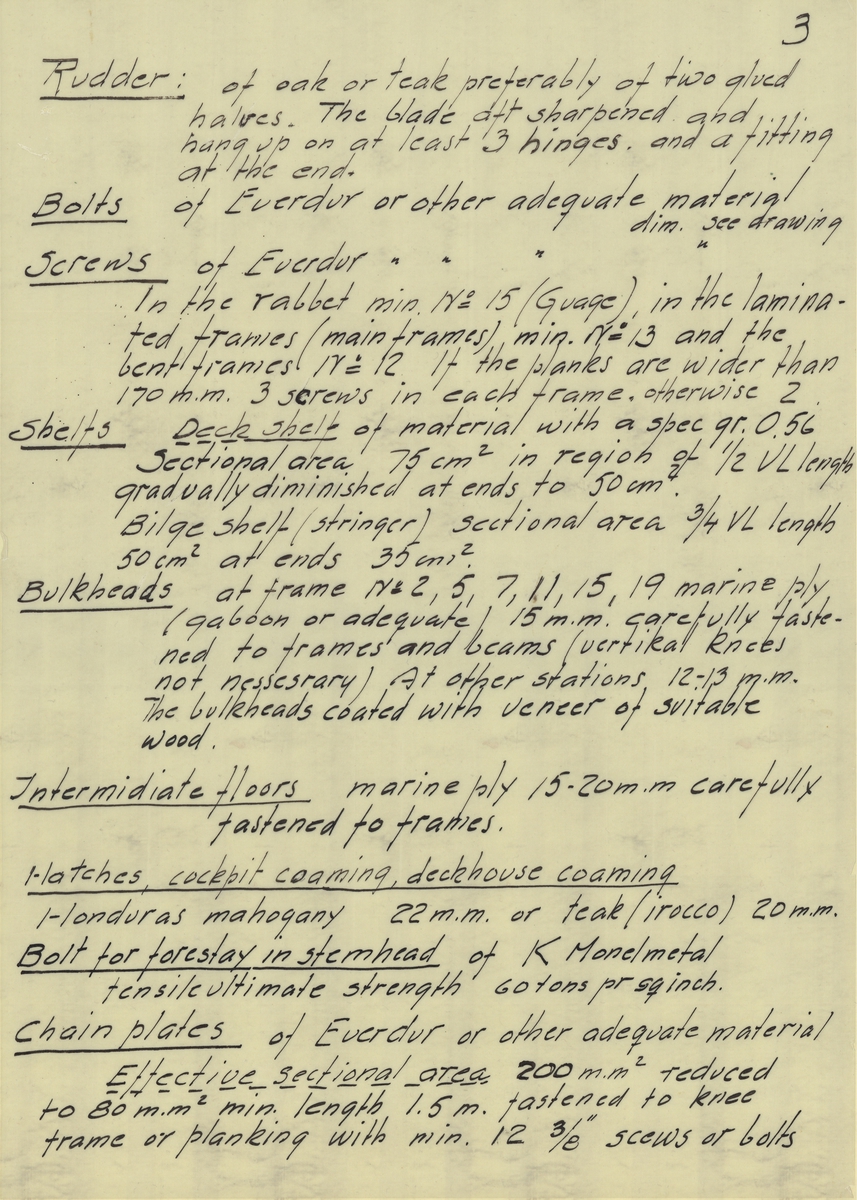 3
Rudder: of oak or teak preferably of two glued
halves. The blade aft sharpened and
hang up on at least 3 hinges. and a fitting
at the end.
Bolts of Everdur or other adequate material
dim. see drawing
Screws of Everdur " " " "
In the rabbet min. Nº 15 (Guage), in the lamina-
ted frames (main frames) min. Nº 13 and the
bent frames Nº 12 If the planks are wider than
170 m.m. 3 screws in each frame. otherwise 2.
Shelfs Deck shelf of material with a spec gr. 0.56
Sectional area 75 cm² in region of 1/2 VL length
gradually diminished at ends to 50 cm².
Bilge shelf (stringer) sectional area 3/4 VL length
50 cm² at ends 35 cm².
Bulkheads at frame Nº 2, 5, 7, 11, 15, 19 marine ply
(gaboon or adequate) 15 m.m. carefully faste-
ned to frames and beams (vertikal knees
not nessesrary) At other stations 12-13 m.m.
The bulkheads coated with veneer of suitable
wood.
Intermidiate floors marine ply 15-20 m.m carefully
fastened to frames.
Hatches, cockpit coaming, deckhouse coaming
Honduras mahogany 22 m.m. or teak (irocco) 20 m.m.
Bolt for forestay in stemhead of K Monelmetal
tensile ultimate strength 60 tons pr sqinch.
Chain plates of Everdur or other adequate material
Effective sectional area 200 m.m² reduced
to 80 m.m² min. length 1.5 m. fastened to knee
frame or planking with min. 12 3/8" scews or bolts